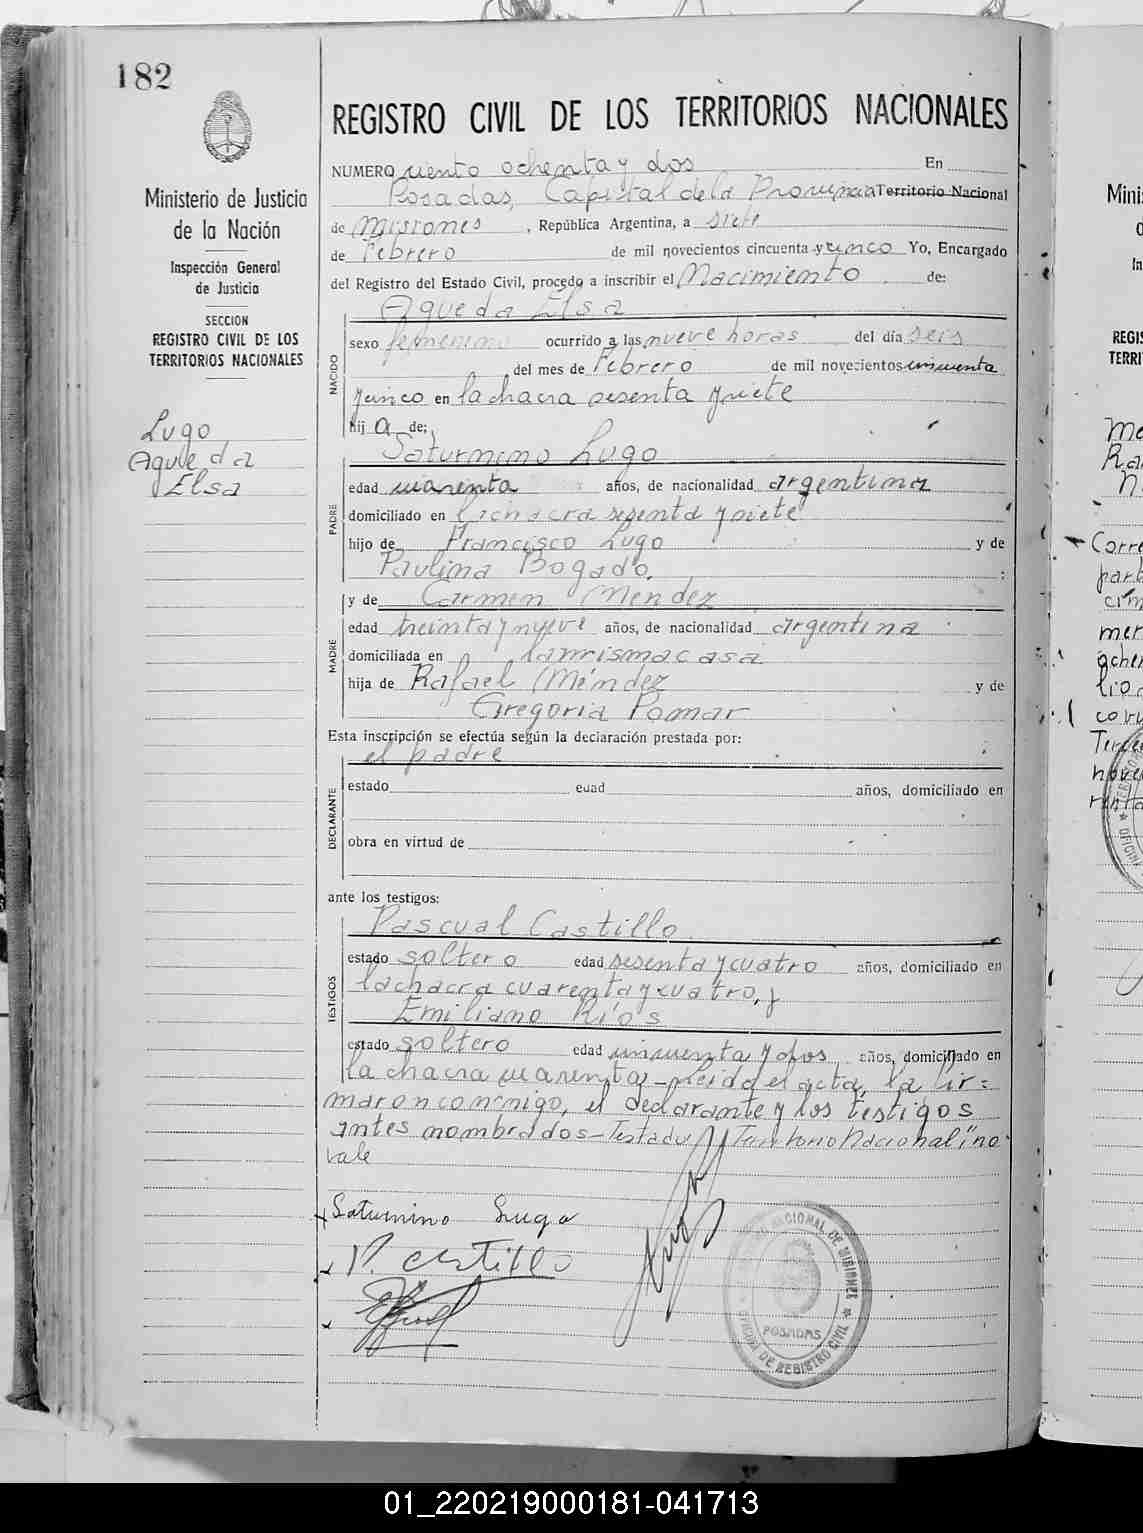 182
Ministerio de Justicia
de la Nación
Inspección General
de Justicia
SECCION
REGISTRO CIVIL DE LOS
TERRITORIOS NACIONALES
Lugo
Agueda
Elsa
REGISTRO CIVIL DE LOS TERRITORIOS NACIONALES
NUMERO ciento ochenta y dos En
Posadas, Capital de la Provincia Territorio Nacional
de Misiones, República Argentina, a siete
de Febrero de mil novecientos cincuenta y cinco Yo, Encargado
del Registro del Estado Civil, procedo a inscribir el Nacimiento de:
Agueda Elsa
NACIDO
sexo femenino ocurrido a las nueve horas del día seis
del mes de Febrero de mil novecientos cincuenta
y cinco en la chacra sesenta y siete
hij a de:
Saturnino Lugo
PADRE
edad cuarenta años, de nacionalidad argentina
domiciliado en la chacra sesenta y siete
hijo de Francisco Lugo y de
Paulina Bogado.
y de Carmen Méndez
MADRE
edad treinta y nueve años, de nacionalidad argentina
domiciliada en la misma casa
hija de Rafael Méndez y de
Gregoria Pomar
Esta inscripción se efectúa según la declaración prestada por:
el padre
DECLARANTE
estado edad años, domiciliado en
obra en virtud de
ante los testigos:
Pascual Castillo
TESTIGOS
estado soltero edad sesenta y cuatro años, domiciliado en
la chacra cuarenta y cuatro, y
Emiliano Ríos
estado soltero edad cincuenta y dos años, domiciliado en
la chacra cuarenta - Leida el acta, la fir=
maron conmigo, el declarante y los testigos
antes nombrados - Testado "Territorio Nacional" no
vale
Saturnino Lugo
P. Castillo
NACIONAL DE MISIONES
POSADAS
OFICINA DE REGISTRO CIVIL
01_220219000181-041713